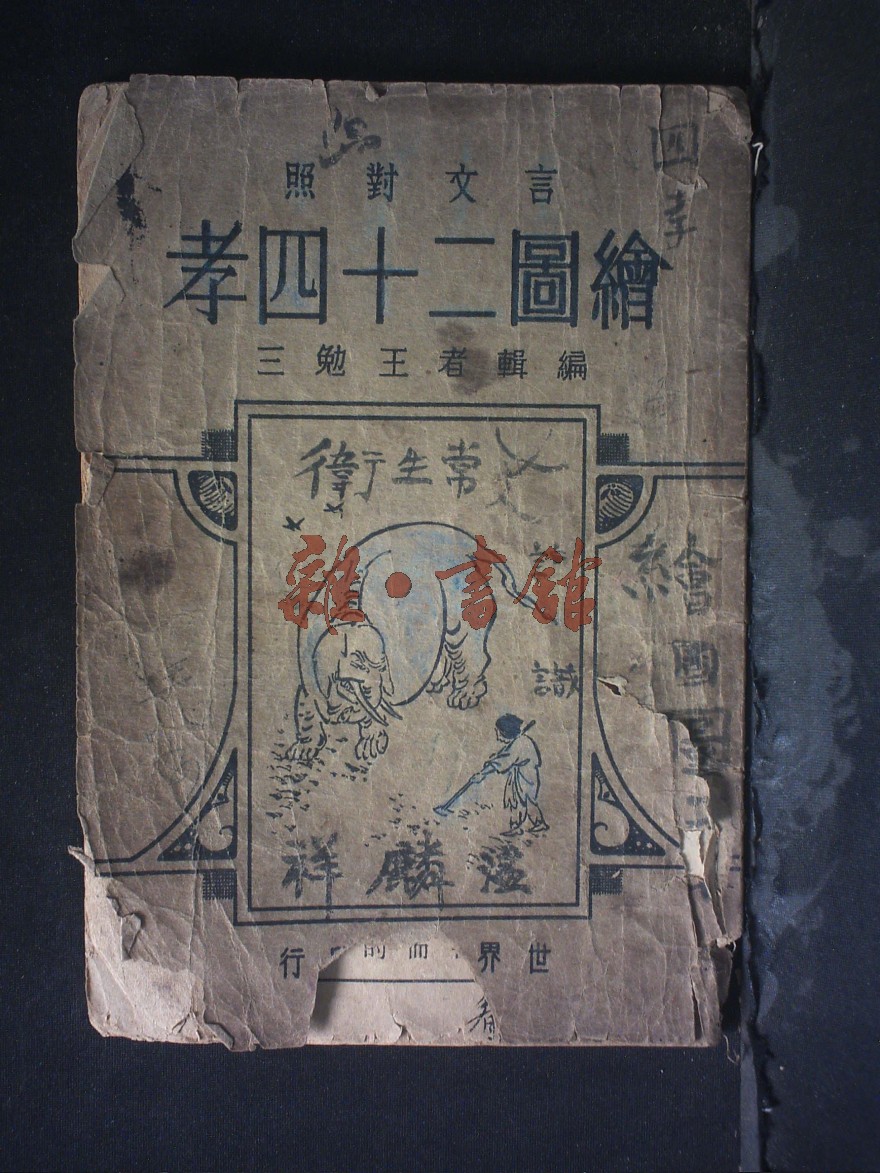 言文對照
繪圖二十四孝
編輯者王勉三
衛生常
識
雜·書館
麟祥
世界
行
四孝
繪國圖